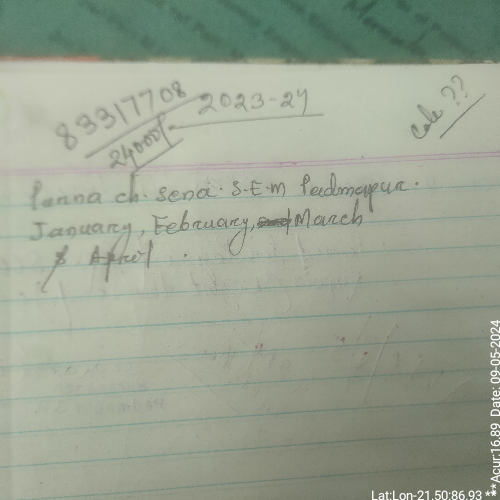 83317708
2023-24
24000/-
Cale ??
Panna ch. Sena. S.E.M Padmapur.
January, February, March
& April.
Lat:Lon-21.50:86.93
**Acur:16.89 Date: 09-05-2024